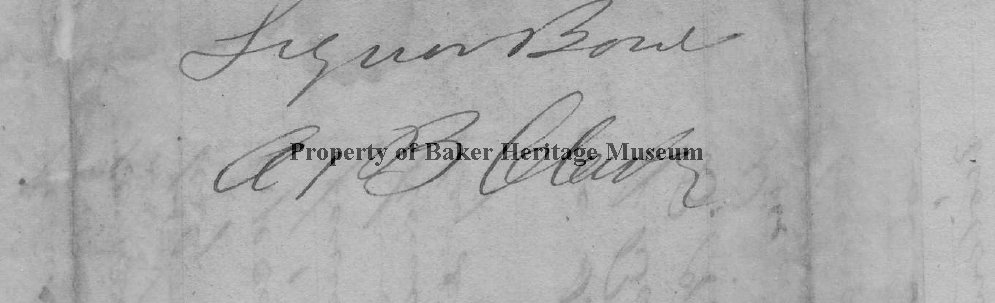 Liquor Bond
A. B. Clark
Property of Baker Heritage Museum